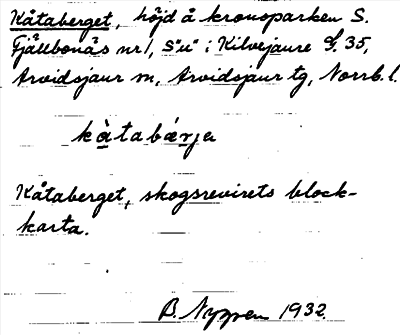 Kåtaberget, höjd å kronoparken S.
Fjällbonäs nr 1, S"u" i Kilvejaure L. 35,
Arvidsjaur sn, Arvidsjaur tg, Norrb. l.
kàtabárja
Kåtaberget, skogsrevirets block-
karta.
B. Nyppen 1932.